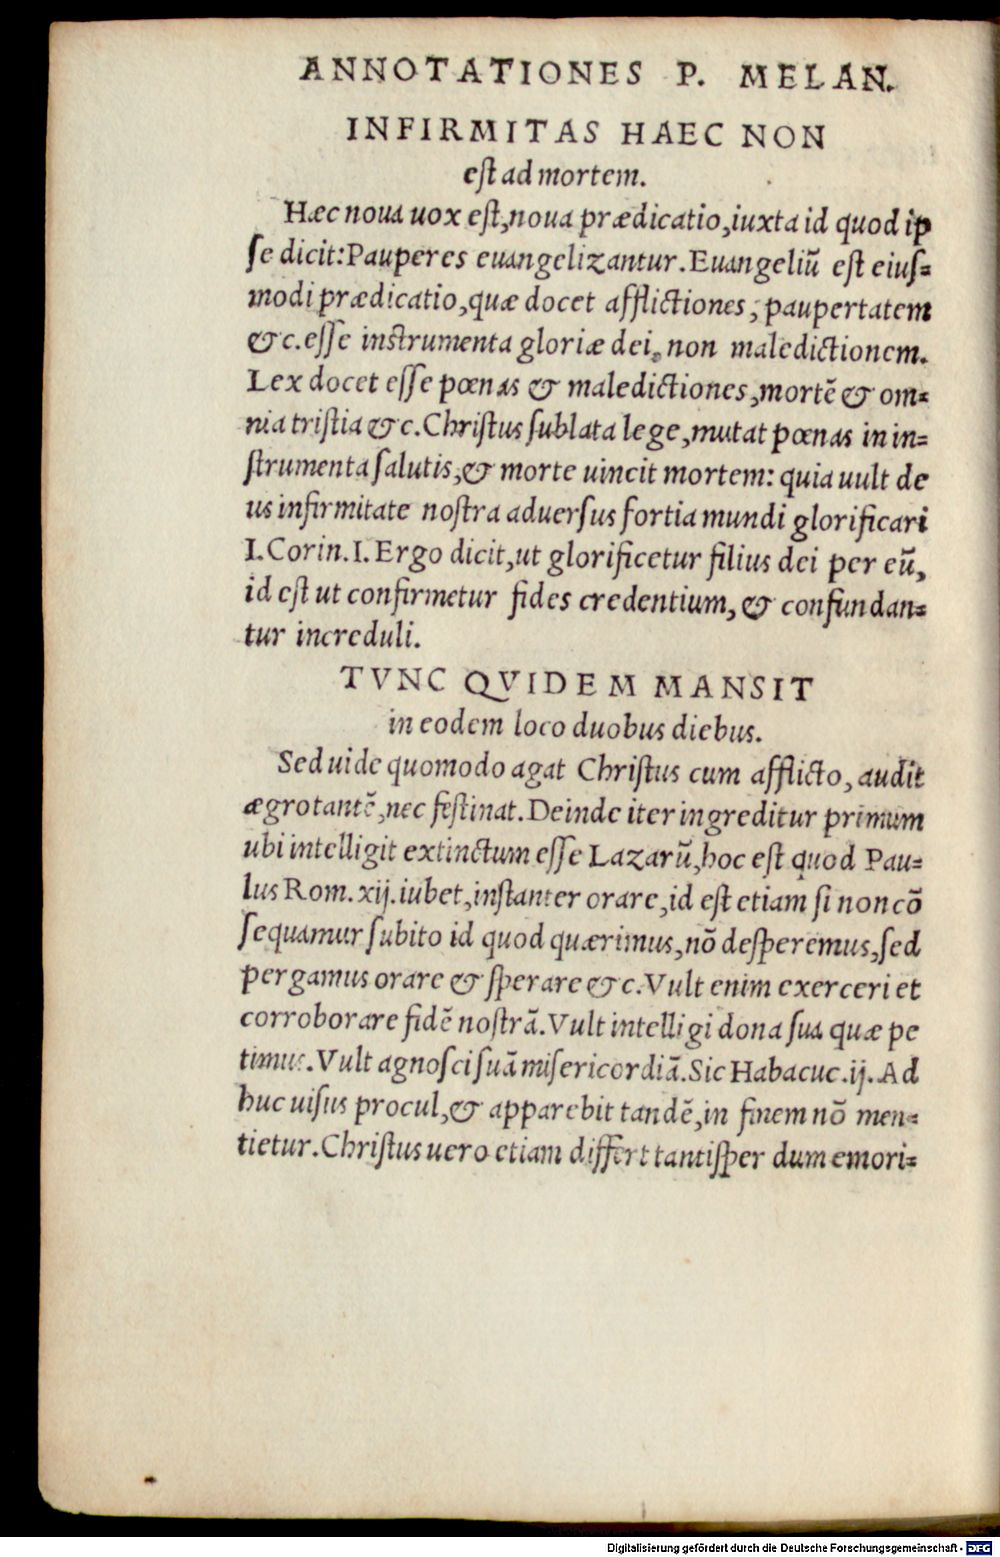 ANNOTATIONES P. MELAN.
INFIRMITAS HAEC NON
est ad mortem.
Hæc noua uox est, noua prædicatio, iuxta id quod ip
se dicit: Pauperes euangelizantur. Euangeliũ est eius=
modi prædicatio, quæ docet afflictiones, paupertatem
&c. esse instrumenta gloriæ dei, non maledictionem.
Lex docet esse pœnas & maledictiones, mortẽ & om=
nia tristia &c. Christus sublata lege, mutat pœnas in in=
strumenta salutis, & morte uincit mortem: quia uult de
us infirmitate nostra aduersus fortia mundi glorificari
I. Corin. I. Ergo dicit, ut glorificetur filius dei per eũ,
id est ut confirmetur fides credentium, & confundan=
tur increduli.
TVNC QVIDEM MANSIT
in eodem loco duobus diebus.
Sed uide quomodo agat Christus cum afflicto, audit
ægrotantẽ, nec festinat. Deinde iter ingreditur primum
ubi intelligit extinctum esse Lazarũ, hoc est quod Pau=
lus Rom. xij. iubet, instanter orare, id est etiam si non cõ
sequamur subito id quod quærimus, nõ desperemus, sed
pergamus orare & sperare &c. Vult enim exerceri et
corroborare fidẽ nostrã. Vult intelligi dona sua quæ pe
timus. Vult agnosci suã misericordiã. Sic Habacuc. ij. Ad
huc uisus procul, & apparebit tandẽ, in finem nõ men=
tietur. Christus uero etiam differt tantisper dum emori=
Digitalisierung gefördert durch die Deutsche Forschungsgemeinschaft - DFG